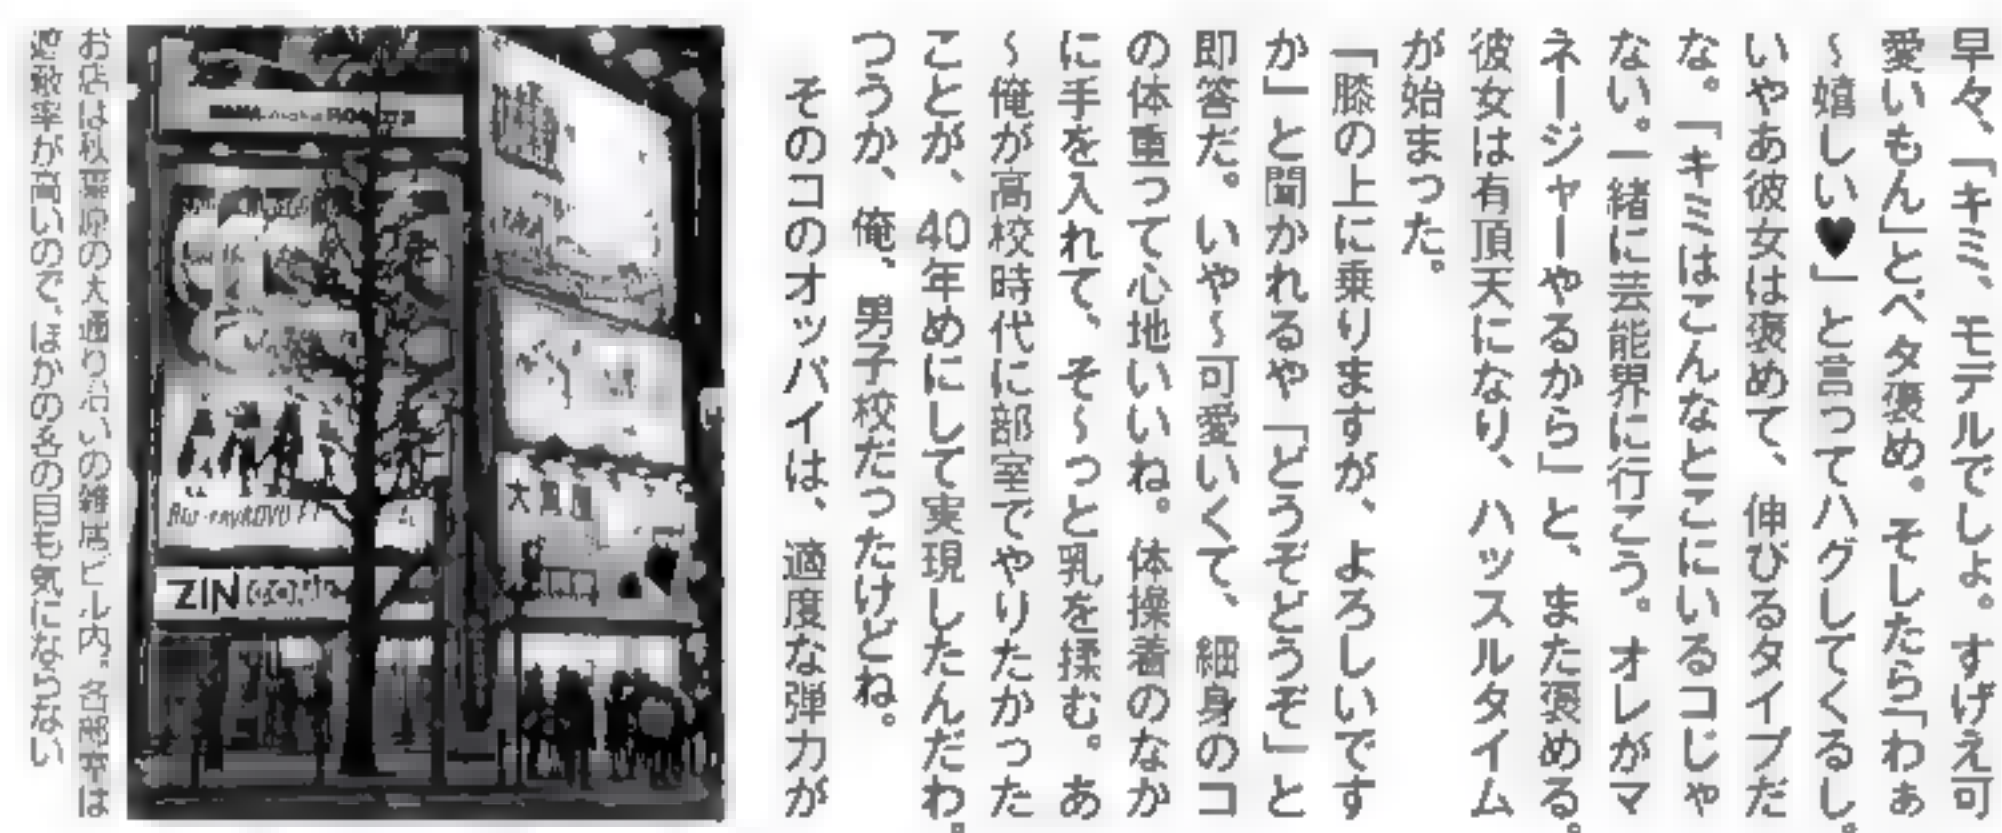 早々、「キミ、モデルでしょ。すげえ可
愛いもん」とベタ褒め。そしたら「わぁ
～嬉しい♥」と言ってハグしてくるし。
いやあ彼女は褒めて、伸びるタイプだ
な。「キミはこんなとこにいるコじゃ
ない。一緒に芸能界に行こう。オレがマ
ネージャーやるから」と、また褒める。
彼女は有頂天になり、ハッスルタイム
が始まった。
「膝の上に乗りますが、よろしいです
か」と聞かれるや「どうぞどうぞ」と
即答だ。いや～可愛いくて、細身のコ
の体重って心地いいね。体操着のなか
に手を入れて、そ～っと乳を揉む。あ
～俺が高校時代に部室でやりたかった
ことが、40年めにして実現したんだわ。
つうか、俺、男子校だったけどね。
そのコのオッパイは、適度な弾力が
ZIN
お店は秋葉原の大通り沿いの雑居ビル内。各部屋は
遮蔽率が高いので、ほかの客の目も気にならない